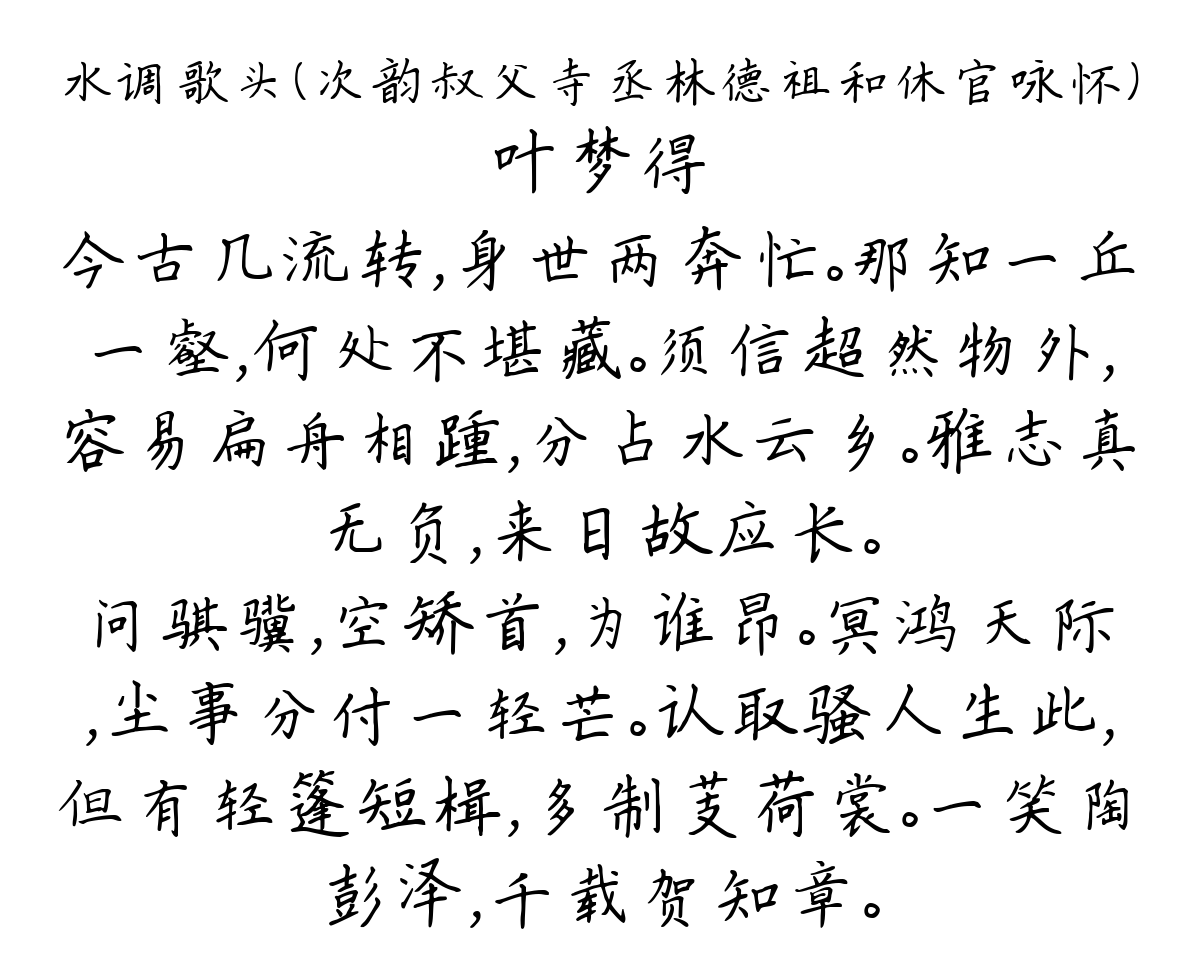 水调歌头(次韵叔父寺丞林德祖和休官咏怀)
叶梦得
今古几流转,身世两奔忙。那知一丘
一壑,何处不堪藏。须信超然物外,
容易扁舟相踵,分占水云乡。雅志真
无负,来日故应长。
问骐骥,空矫首,为谁昂。冥鸿天际
,尘事分付一轻芒。认取骚人生此,
但有轻篷短楫,多制芰荷裳。一笑陶
彭泽,千载贺知章。